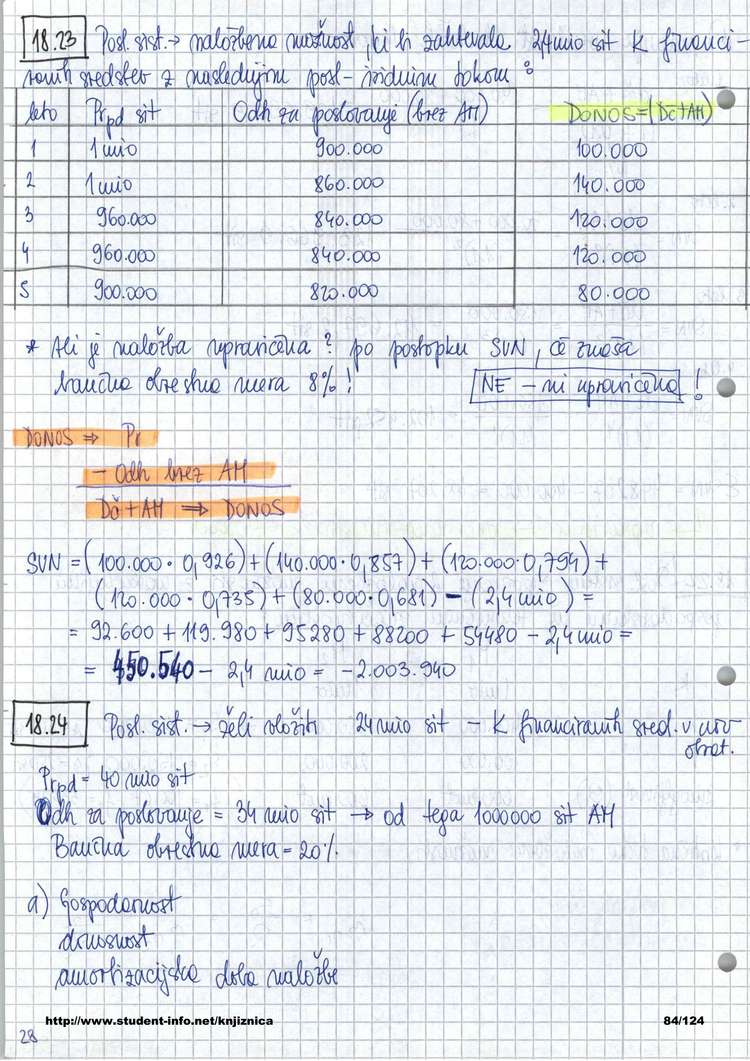 18.23 Posl. sist. → naložbena možnost, ki bi zahtevala 2,4 mio sit K financi-
ranih sredstev z naslednjim posl-izidnim tokom :
leto Prpd sit Odh za poslovanje (brez AM) DONOS=(Dč+AM)
1 1 mio 900.000 100.000
2 1 mio 860.000 140.000
3 960.000 840.000 120.000
4 960.000 840.000 120.000
5 900.000 820.000 80.000
* Ali je naložba upravičena ? po postopku SVN, če znaša
bančna obrestna mera 8% ! NE – ni upravičena !
DONOS ⇒ Pr
– Odh brez AM
Dč + AM ⇒ DONOS
SVN = (100.000 · 0,926) + (140.000 · 0,857) + (120.000 · 0,794) +
(120.000 · 0,735) + (80.000 · 0,681) – (2,4 mio) =
= 92.600 + 119.980 + 95280 + 88200 + 54480 – 2,4 mio =
= 450.540 – 2,4 mio = -2.003.940
18.24 Posl. sist. → želi vložiti 24 mio sit – K financiranih sred. v nov
obrat.
Prpd = 40 mio sit
Odh za poslovanje = 34 mio sit → od tega 1000000 sit AM
Bančna obrestna mera = 20%
a) Gospodarnost
donosnost
amortizacijska doba naložbe
http://www.student-info.net/knjiznica 84/124
28